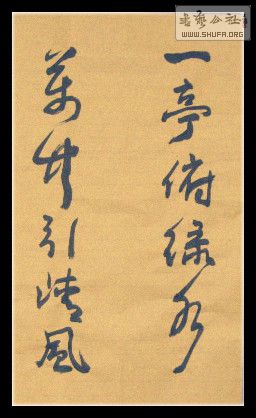 一亭俯緑水
萬竹引清風
書藝公社
WWW.SHUFA.ORG